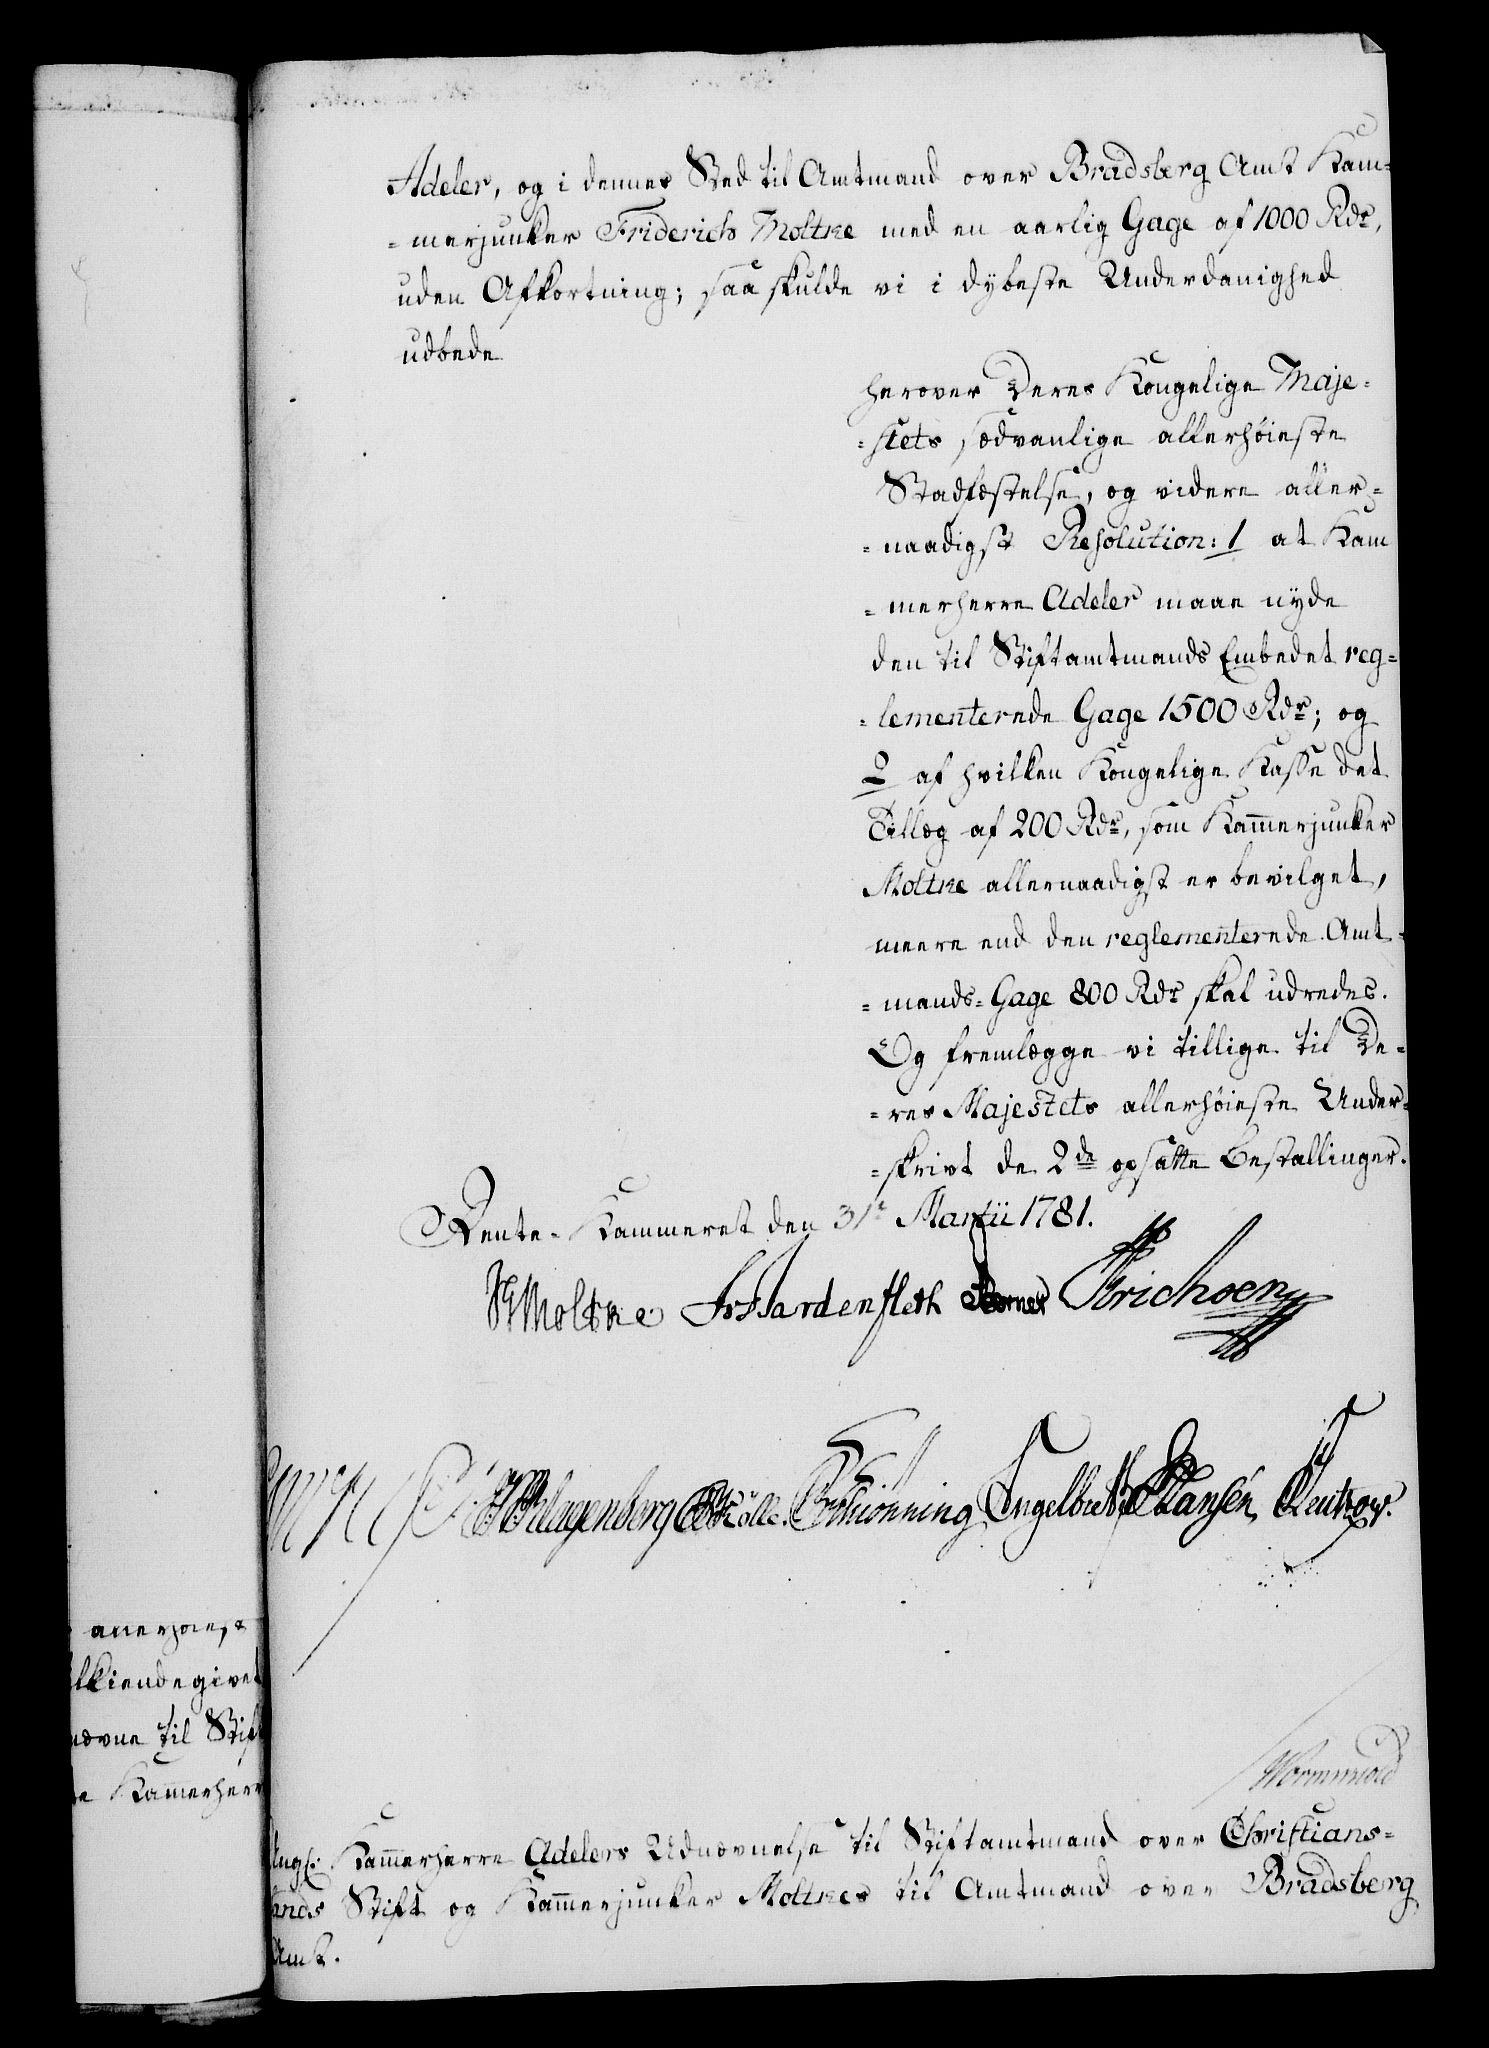 Adeler, og i dennes Sted til Amtmand over Bradsberg Amt Kam-
-merjunker Friderich Moltke med en aarlig Gage af 1000 Rdr,
uden Afkortning; saa skulde vi i dybeste Underdanighed
udbede
herover Deres Kongelige Maje-
-stets sædvanlige allerhøieste
Stadfæstelse, og videre aller-
-naadigst Resolution: 1 at Kam
-merherre Adeler maae nyde
den til Stiftamtmands Embedet reg-
-lementerede Gage 1500 Rdr; og
2 af hvilken Kongelige Kasse det
Tillæg af 200 Rdr, som Kammerjunker
Moltke allernaadigst er bevilget,
meere end den reglementerede Amt-
-mands-Gage 800 Rdr skal udredes.
Og fremlægge vi tillige til De-
-res Majestets allerhøieste Under-
-skrivt de 2de opsatte Bestallinger.
Rente-Kammeret den 31te Martii 1781.
Moltke Hardenfleth Horner Erichsen
Klagenberg Schiønning Engelbret Hansen Rentzow.
Wormskiold
allerhøiest
tilkiendegivet
nævne til Stif
Kammerherr
Ang: Kammerherre Adelers Udnævnelse til Stiftamtmand over Christians-
sands Stift og Kammerjunker Moltkes til Amtmand over Bradsberg
Amt.